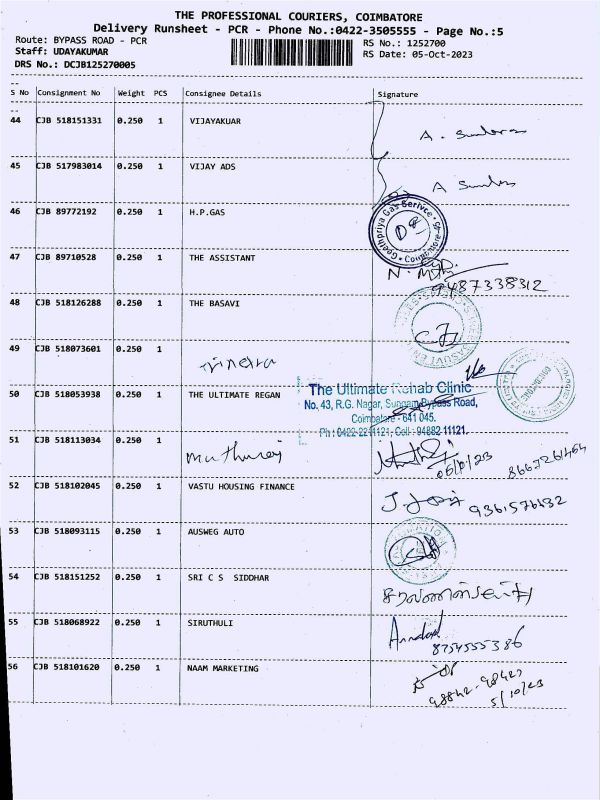 THE PROFESSIONAL COURIERS, COIMBATORE
Delivery Runsheet - PCR - Phone No.:0422-3505555 - Page No.:5
Route: BYPASS ROAD - PCR
RS No.: 1252700
Staff: UDAYAKUMAR
RS Date: 05-Oct-2023
DRS No.: DCJB125270005
S No Consignment No Weight PCS Consignee Details Signature
44 CJB 518151331 0.250 1 VIJAYAKUAR
45 CJB 517983014 0.250 1 VIJAY ADS
46 CJB 89772192 0.250 1 H.P.GAS
Coimbatore
47 CJB 89710528 0.250 1 THE ASSISTANT
9487338312
48 CJB 518126288 0.250 1 THE BASAVI
49 CJB 518073601 0.250 1
50 CJB 518053938 0.250 1 THE ULTIMATE REGAN
The Ultimate Rehab Clinic
No. 43, R.G. Nagar, Sungam Bypass Road,
Coimbatore - 641 045.
Ph : 0422-2211121, Cell : 94882 11121.
51 CJB 518113034 0.250 1 Muthuraj
52 CJB 518102045 0.250 1 VASTU HOUSING FINANCE
9361576432
53 CJB 518093115 0.250 1 AUSWEG AUTO
54 CJB 518151252 0.250 1 SRI C S SIDDHAR
55 CJB 518068922 0.250 1 SIRUTHULI
8754555386
56 CJB 518101620 0.250 1 NAAM MARKETING
98842-98423
5/10/23